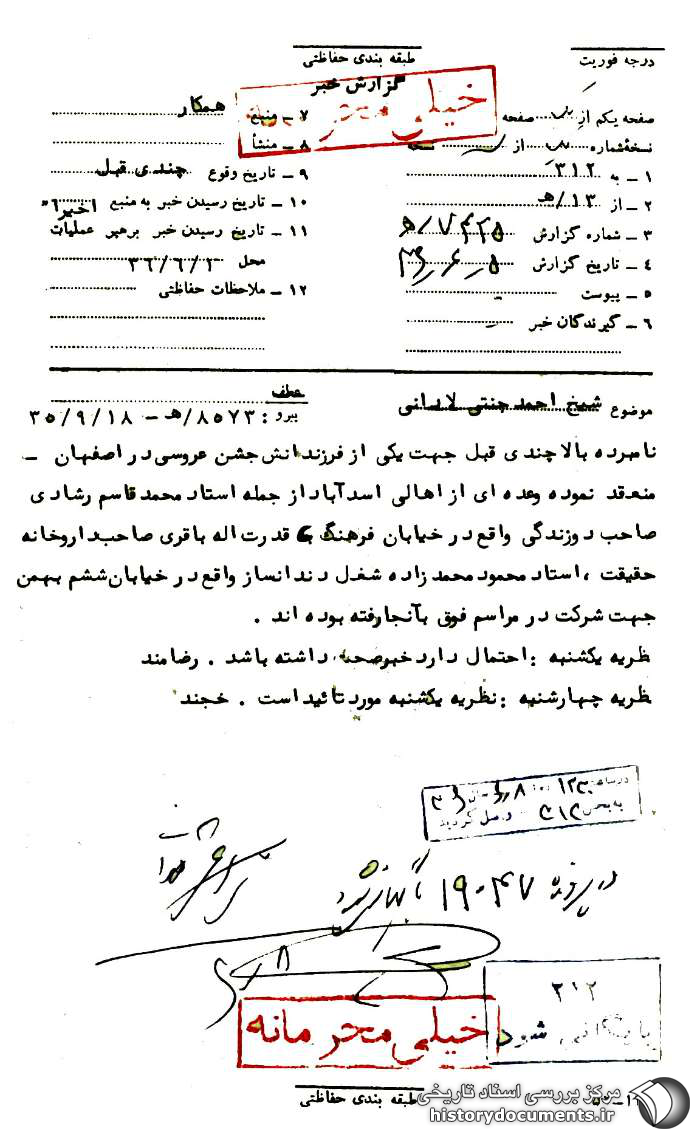 درجه فوریت
طبقه بندی حفاظتی
گزارش خبر
خیلی محرمانه
صفحه یکم از یک صفحه
نسخه شماره از نسخه
۱ - به ۳۱۲
۲ - از ۱۳/هـ
۳ - شماره گزارش ۷۴۴۵/
۴ - تاریخ گزارش ۳۶/۶/۵
۵ - پیوست
۶ - گیرندگان خبر
۷ - منبع همکار
۸ - منشأ
۹ - تاریخ وقوع چندی قبل
۱۰ - تاریخ رسیدن خبر به منبع اخیرا"
۱۱ - تاریخ رسیدن خبر برهبر عملیات
محل ۳۶/۶/۲
۱۲ - ملاحظات حفاظتی
موضوع شیخ احمد جنتی لادانی
عطف
پیرو : ۸۵۷۳/هـ - ۳۵/۹/۱۸
نامبرده بالا چندی قبل جهت یکی از فرزندانش جشن عروسی در اصفهان -
منعقد نموده و عده ای از اهالی اسدآباد از جمله استاد محمد قاسم رشادی
صاحب دوزندگی واقع در خیابان فرهنگ قدرت اله باقری صاحب داروخانه
حقیقت ، استاد محمود محمدزاده شغل دندانساز واقع در خیابان ششم بهمن
جهت شرکت در مراسم فوق بآنجا رفته بوده اند .
نظریه یکشنبه : احتمال دارد خبر صحت داشته باشد . رضامند
نظریه چهارشنبه : نظریه یکشنبه مورد تائید است . خجند
در ساعت ۱۲۳۰ روز
به بخش ۳۱۲ واصل گردید
در پرونده ۱۹۰۴۷ بایگانی شود
۶/۸
۳۱۲
بایگانی شود
خیلی محرمانه
طبقه بندی حفاظتی
مرکز بررسی اسناد تاریخی
historydocuments.ir